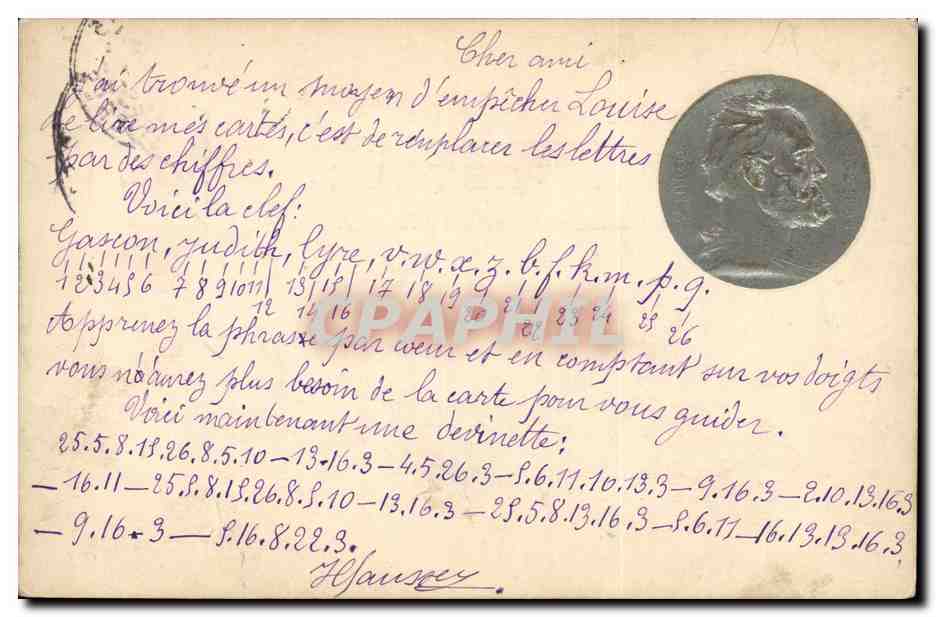 Cher ami
J'ai trouvé un moyen d'empêcher Louise
de lire mes cartes, c'est de remplacer les lettres
par des chiffres.
Voici la clef:
Gascon, judith, lyre, v. w. x. z. b. f. k. m. p. q.
1 2 3 4 5 6 7 8 9 10 11 12 13 14 15 16 17 18 19 20 21 22 23 24 25 26
Apprenez la phrase par cœur et en comptant sur vos doigts
vous n'aurez plus besoin de la carte pour vous guider.
Voici maintenant une devinette:
25.5.8.15.26.8.5.10 — 13.16.3 — 4.5.26.3 — 5.6.11.10.13.3 — 9.16.3 — 2.10.13.16.3
— 16.11 — 25.5.8.15.26.8.5.10 — 13.16.3 — 25.5.8.13.16.3 — 5.6.11 — 16.13.13.16.3
— 9.16.3 — 5.16.8.22.3.
CPAPHIL